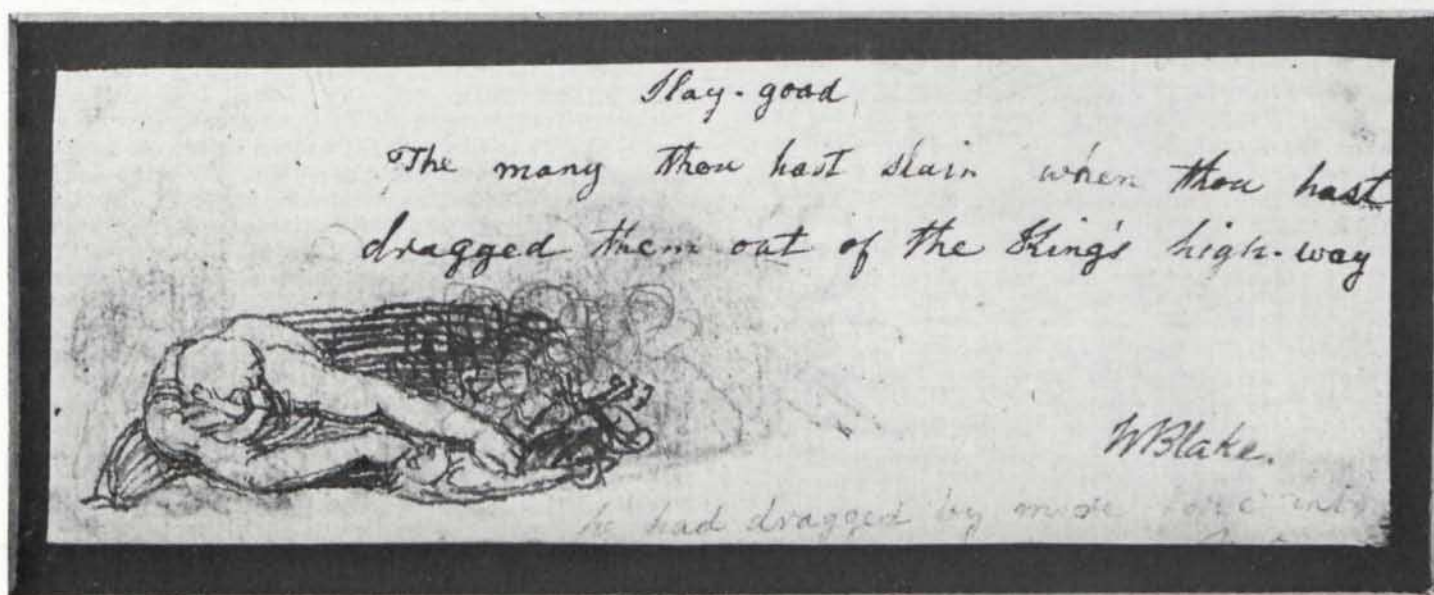 Slay-good
The many thou hast slain when thou hast
dragged them out of the King's high-way
WBlake.
he had dragged by